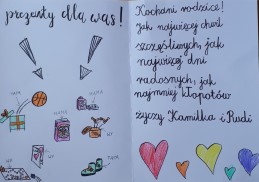 prezenty dla was!
Kochani rodzice!
jak najwięcej chwil
szczęśliwych, jak
najwięcej dni
radosnych, jak
najmniej kłopotów
życzy Kamilka i Rudi